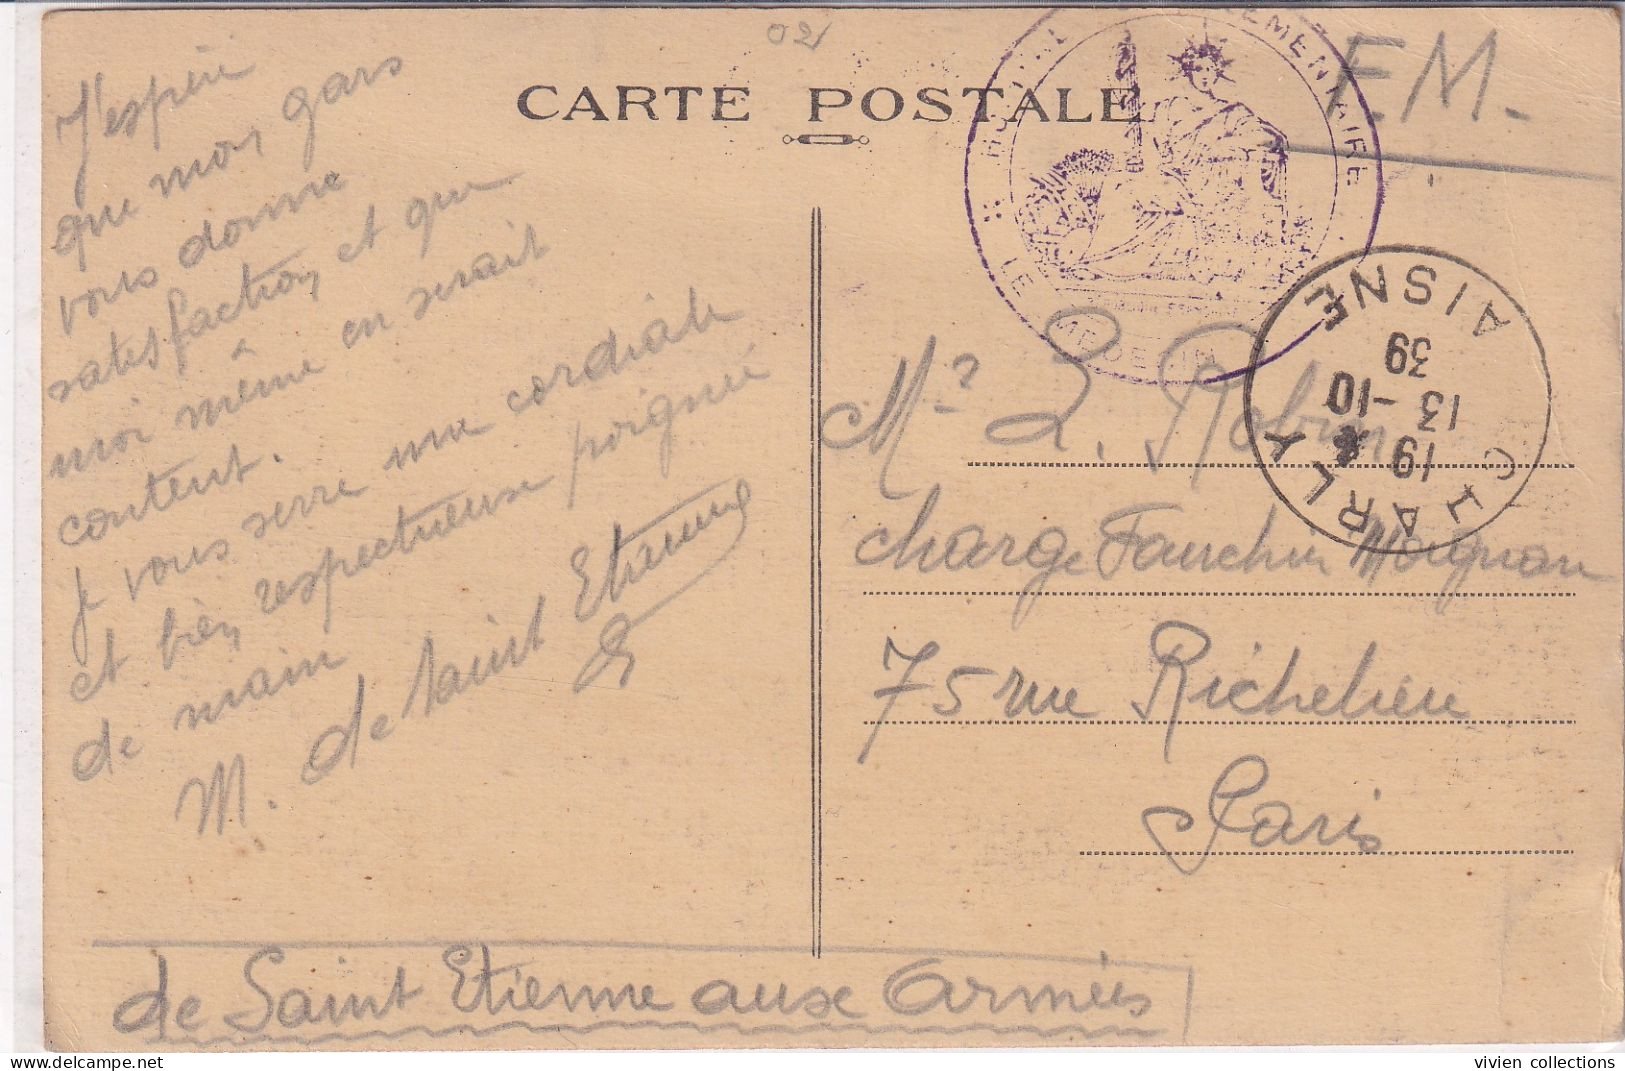 02
CARTE POSTALE
F.M.
J'espère
que mon gars
vous donne
satisfaction et que
moi même en serait
content.
Je vous serre ma cordiale
et bien respectueuse poignée
de main
M. de Saint Etienne
HOPITAL COMPLEMENTAIRE
LE MEDECIN
CHARLY
19
13-10
39
AISNE
Mr L. Robin
charge Fauchier Maignan
75 rue Richelieu
Paris
de Saint Etienne aux Armées
vivien collections